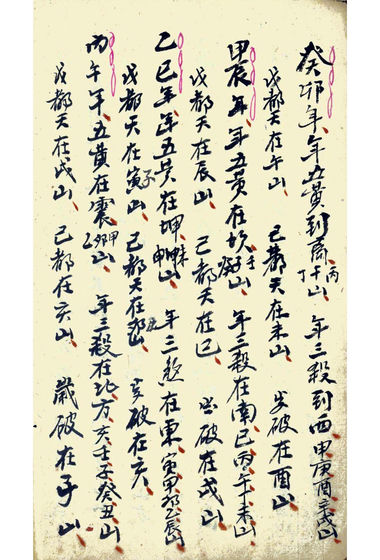 癸卯年年五黃到离丙丁山年三殺到四申庚酉辛戌山
戊都天在午山 己都天在未山 歲破在酉山
甲辰年年五黃在坎壬癸山年三殺在南巳丙午丁未山
戊都天在辰山 己都天在巳 歲破在戌山
乙巳年年五黃在坤未申山年三煞在東寅甲卯乙辰山
戊都天在寅山 己都天在卯山 歲破在亥
丙午年五黃在震甲卯乙山年三殺在北方亥壬子癸丑山
戊都天在戌山 己都在亥山 歲破在子山